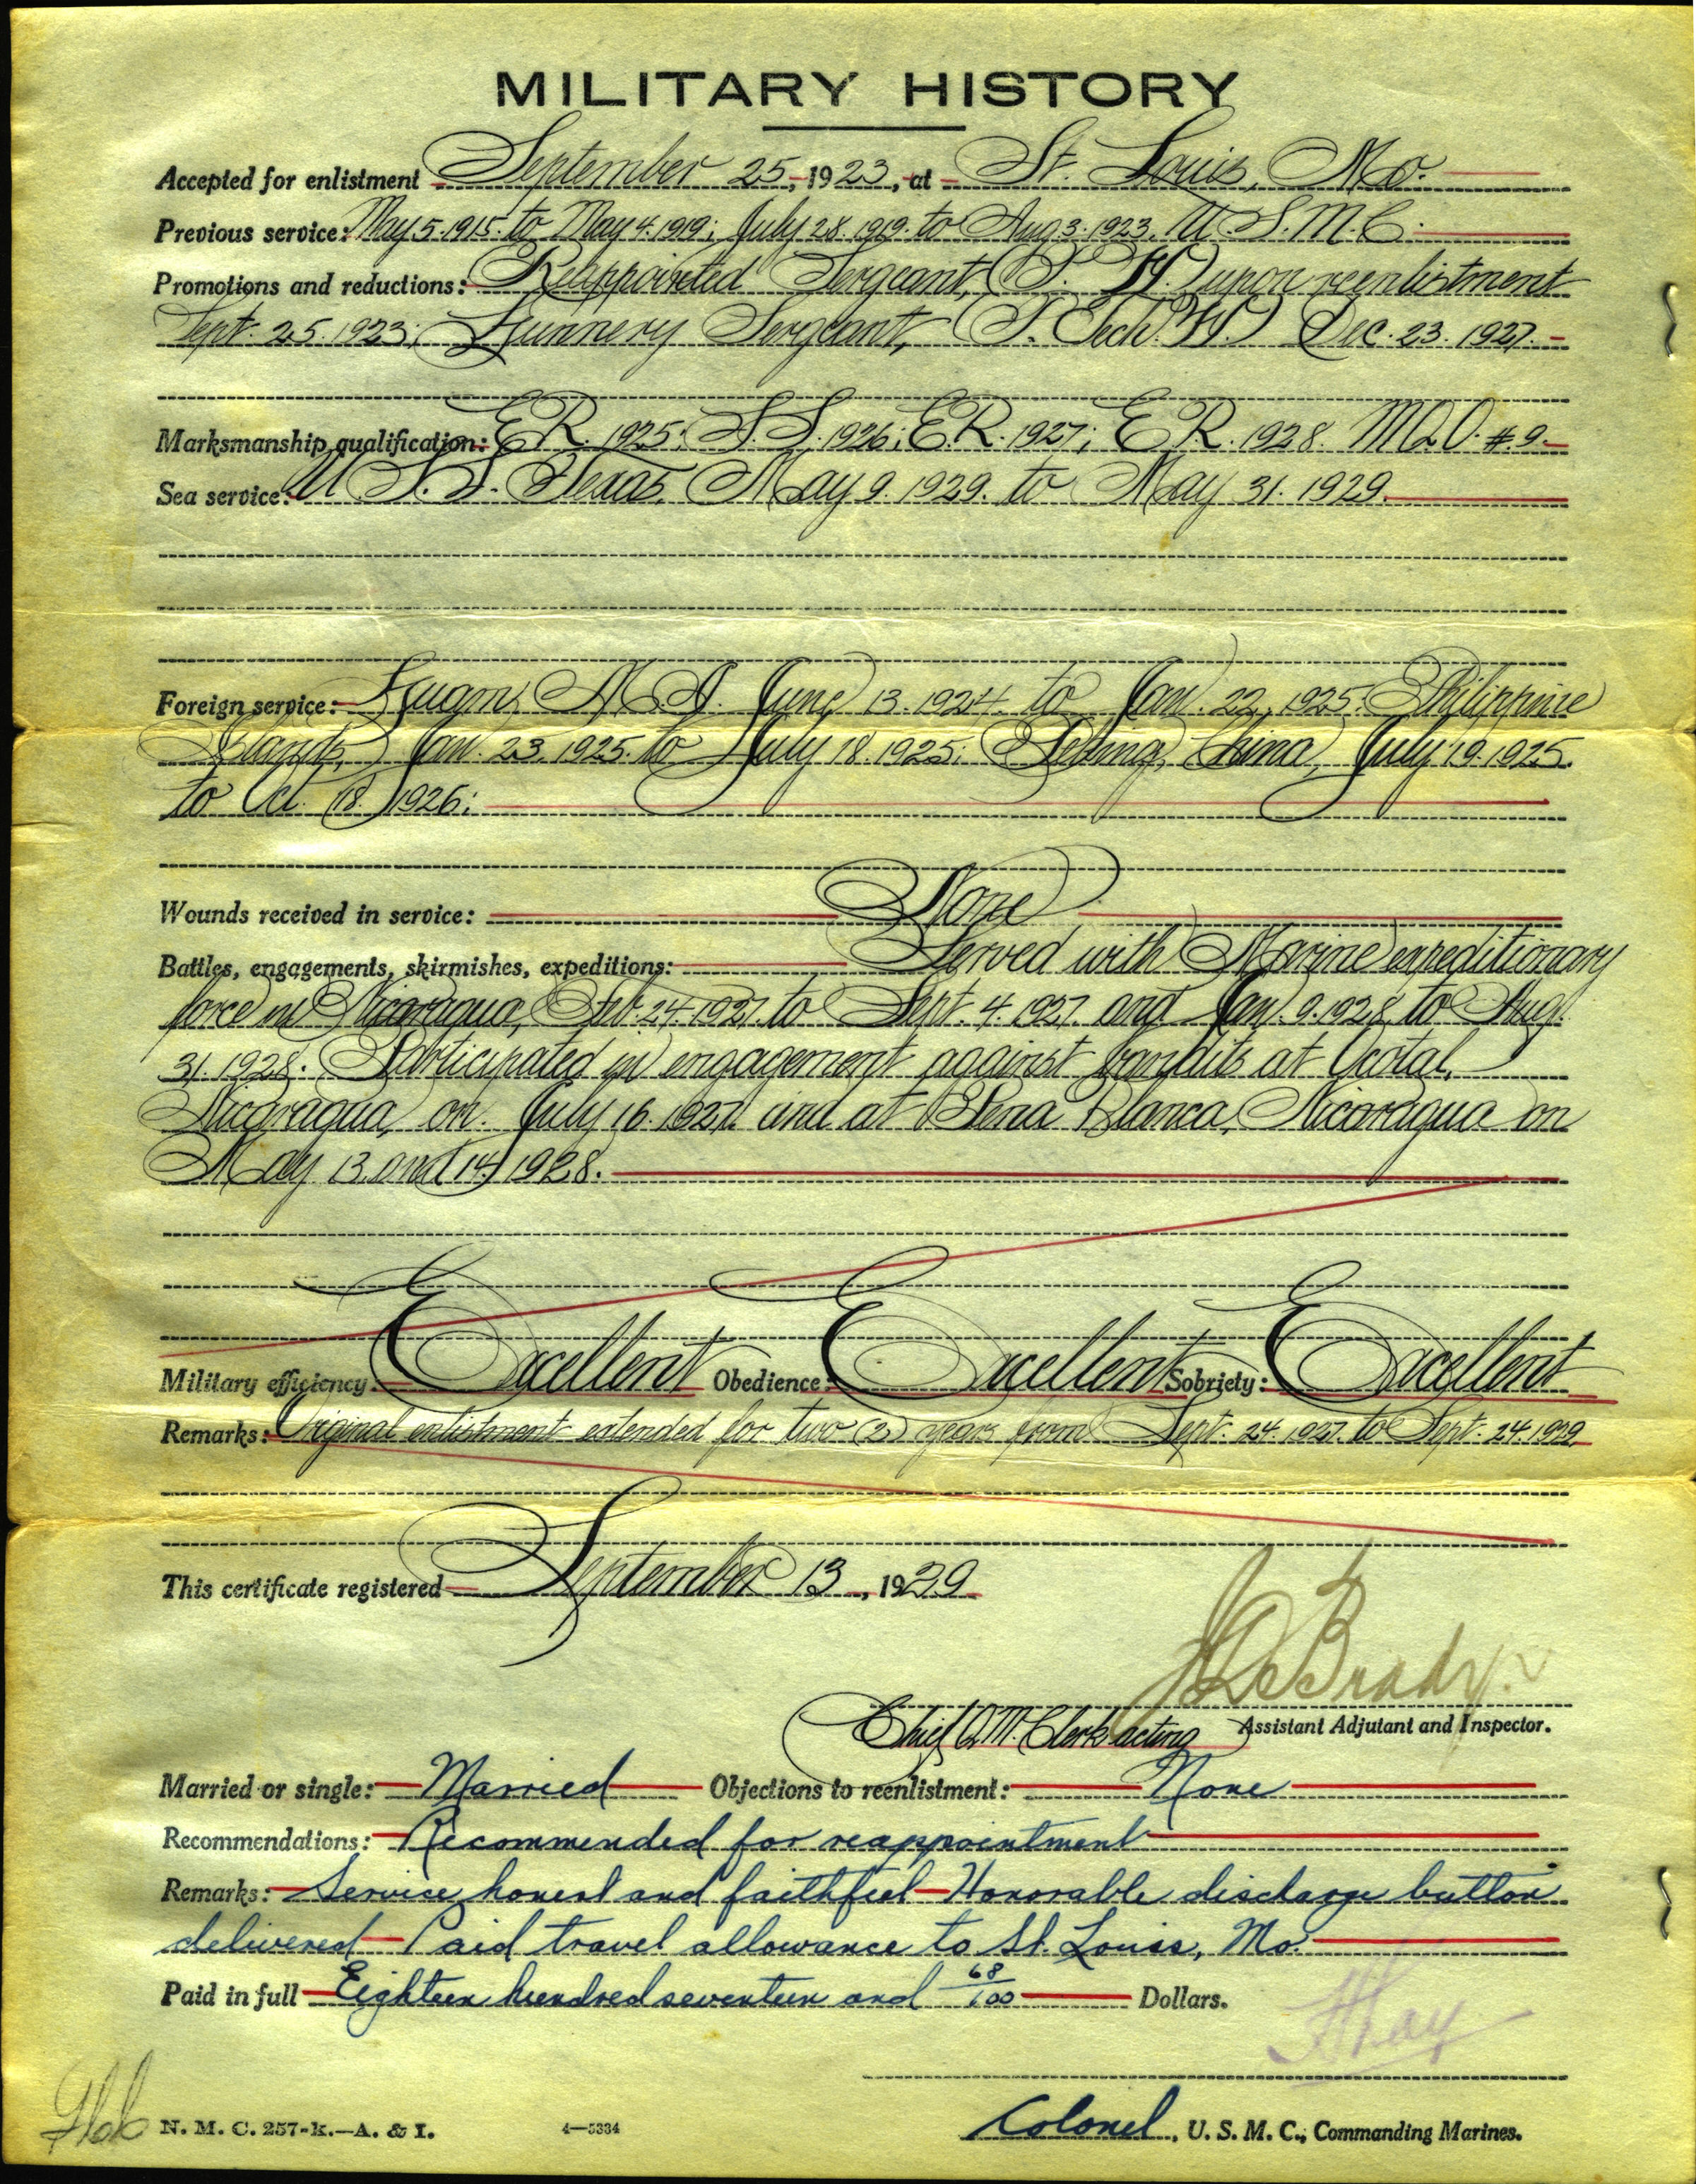 MILITARY HISTORY
Accepted for enlistment September 25, 1923, at St. Louis, Mo.
Previous service: May 5. 1915. to May 4. 1919; July 28. 1919. to Aug 3. 1923. U.S.M.C.
Promotions and reductions: Reappointed Sergeant, (T. W.) upon reenlistment
Sept. 25. 1923; Gunnery Sergeant, (T. Tech. W.) Dec. 23. 1927.
Marksmanship qualification: E.R. 1925; S.S. 1926; E.R. 1927; E.R. 1928. M.D.O. #9.
Sea service: U.S.S. Texas, May 9. 1929. to May 31. 1929.
Foreign service: Guam, M.I. June 13. 1924. to Jan. 22, 1925; Philippine
Islands, Jan. 23. 1925. to July 18. 1925; Peking, China, July 19. 1925.
to Oct. 18. 1926;
Wounds received in service: None
Battles, engagements, skirmishes, expeditions: Served with Marine expeditionary
force in Nicaragua, Feb. 24. 1927. to Sept. 4. 1927. and Jan. 9. 1928, to Aug.
31. 1928. Participated in engagement against bandits at Ocotal,
Nicaragua, on. July 16. 1927. and at Pena Blanca, Nicaragua on
May 13. and 14, 1928.
Military efficiency: Excellent Obedience: Excellent Sobriety: Excellent
Remarks: Original enlistment extended for two (2) years from Sept. 24. 1927. to Sept. 24. 1929.
This certificate registered September 13, 1929.
Chief Q.M. Clerk acting Assistant Adjutant and Inspector.
Married or single: Married Objections to reenlistment: None
Recommendations: Recommended for reappointment
Remarks: Service honest and faithful - Honorable discharge button
delivered - Paid travel allowance to St. Louis, Mo.
Paid in full Eighteen hundred seventeen and 68/100 Dollars.
Colonel, U. S. M. C., Commanding Marines.
N. M. C. 257-k.—A. & I. 4—5334